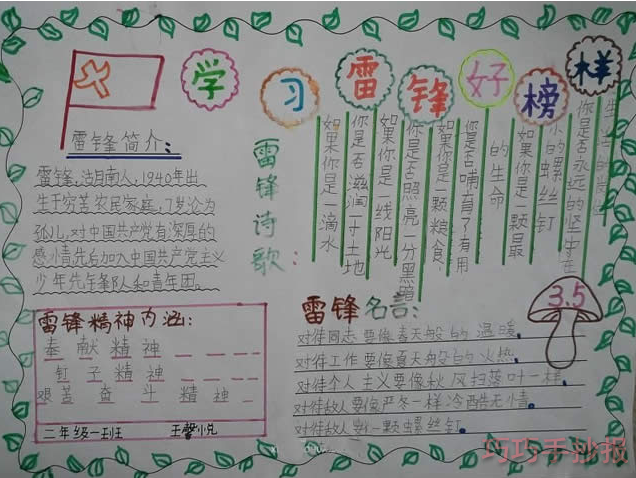 学习雷锋好榜样
雷锋简介:
雷锋,湖南人,1940年出
生于穷苦农民家庭,7岁沦为
孤儿,对中国共产党有深厚的
感情先后加入中国共产主义
少年先锋队和青年团。
雷锋诗歌:
如果你是一滴水
你是否滋润一寸土地
如果你是一线阳光
你是否照亮一分黑暗
如果你是一颗粮食,
你是否哺育了有用
的生命
如果你是一颗最
小的螺丝钉
你是否永远的坚守在
雷锋精神内涵:
奉献精神
钉子精神
艰苦奋斗精神
二年级一班 王馨悦
雷锋名言:
3.5
对待同志要像春天般的温暖。
对待工作要像夏天般的火热。
对待个人主义要像秋风扫落叶一样。
对待敌人要像严冬一样冷酷无情。
对待敌人一颗螺丝钉。
巧巧手抄报